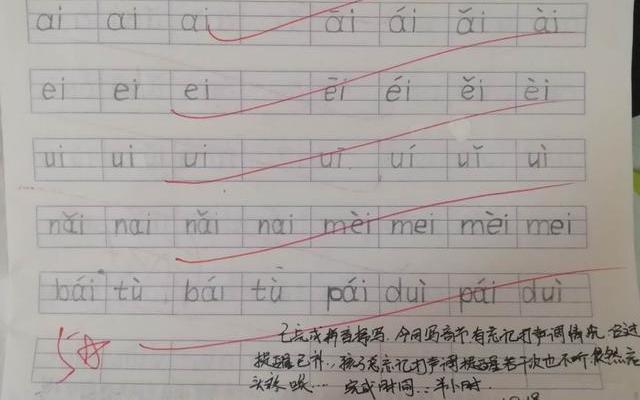 ai ai ai āi ái ǎi ài
ei ei ei ēi éi ěi èi
ui ui ui uī uí uǐ uì
nǎi nai nǎi nai mèi mei mèi mei
bái tù bái tù pái duì pái duì
5
已完成拼音拼写，今日写音节有忘记打声调情况，经过
提醒已补，孩子忘记打声调提醒若干次也不听，依然
完成时间：半小时.